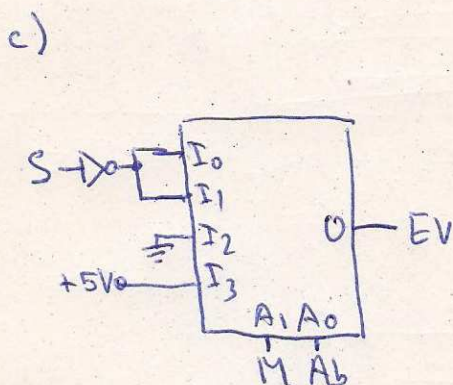 c)
S
I0
I1
I2
+5V
I3
O
EV
A1 A0
M Ab